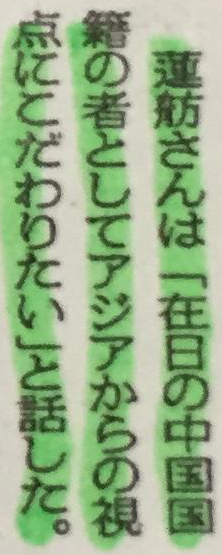 蓮舫さんは「在日の中国国
籍の者としてアジアからの視
点にこだわりたい」と話した。